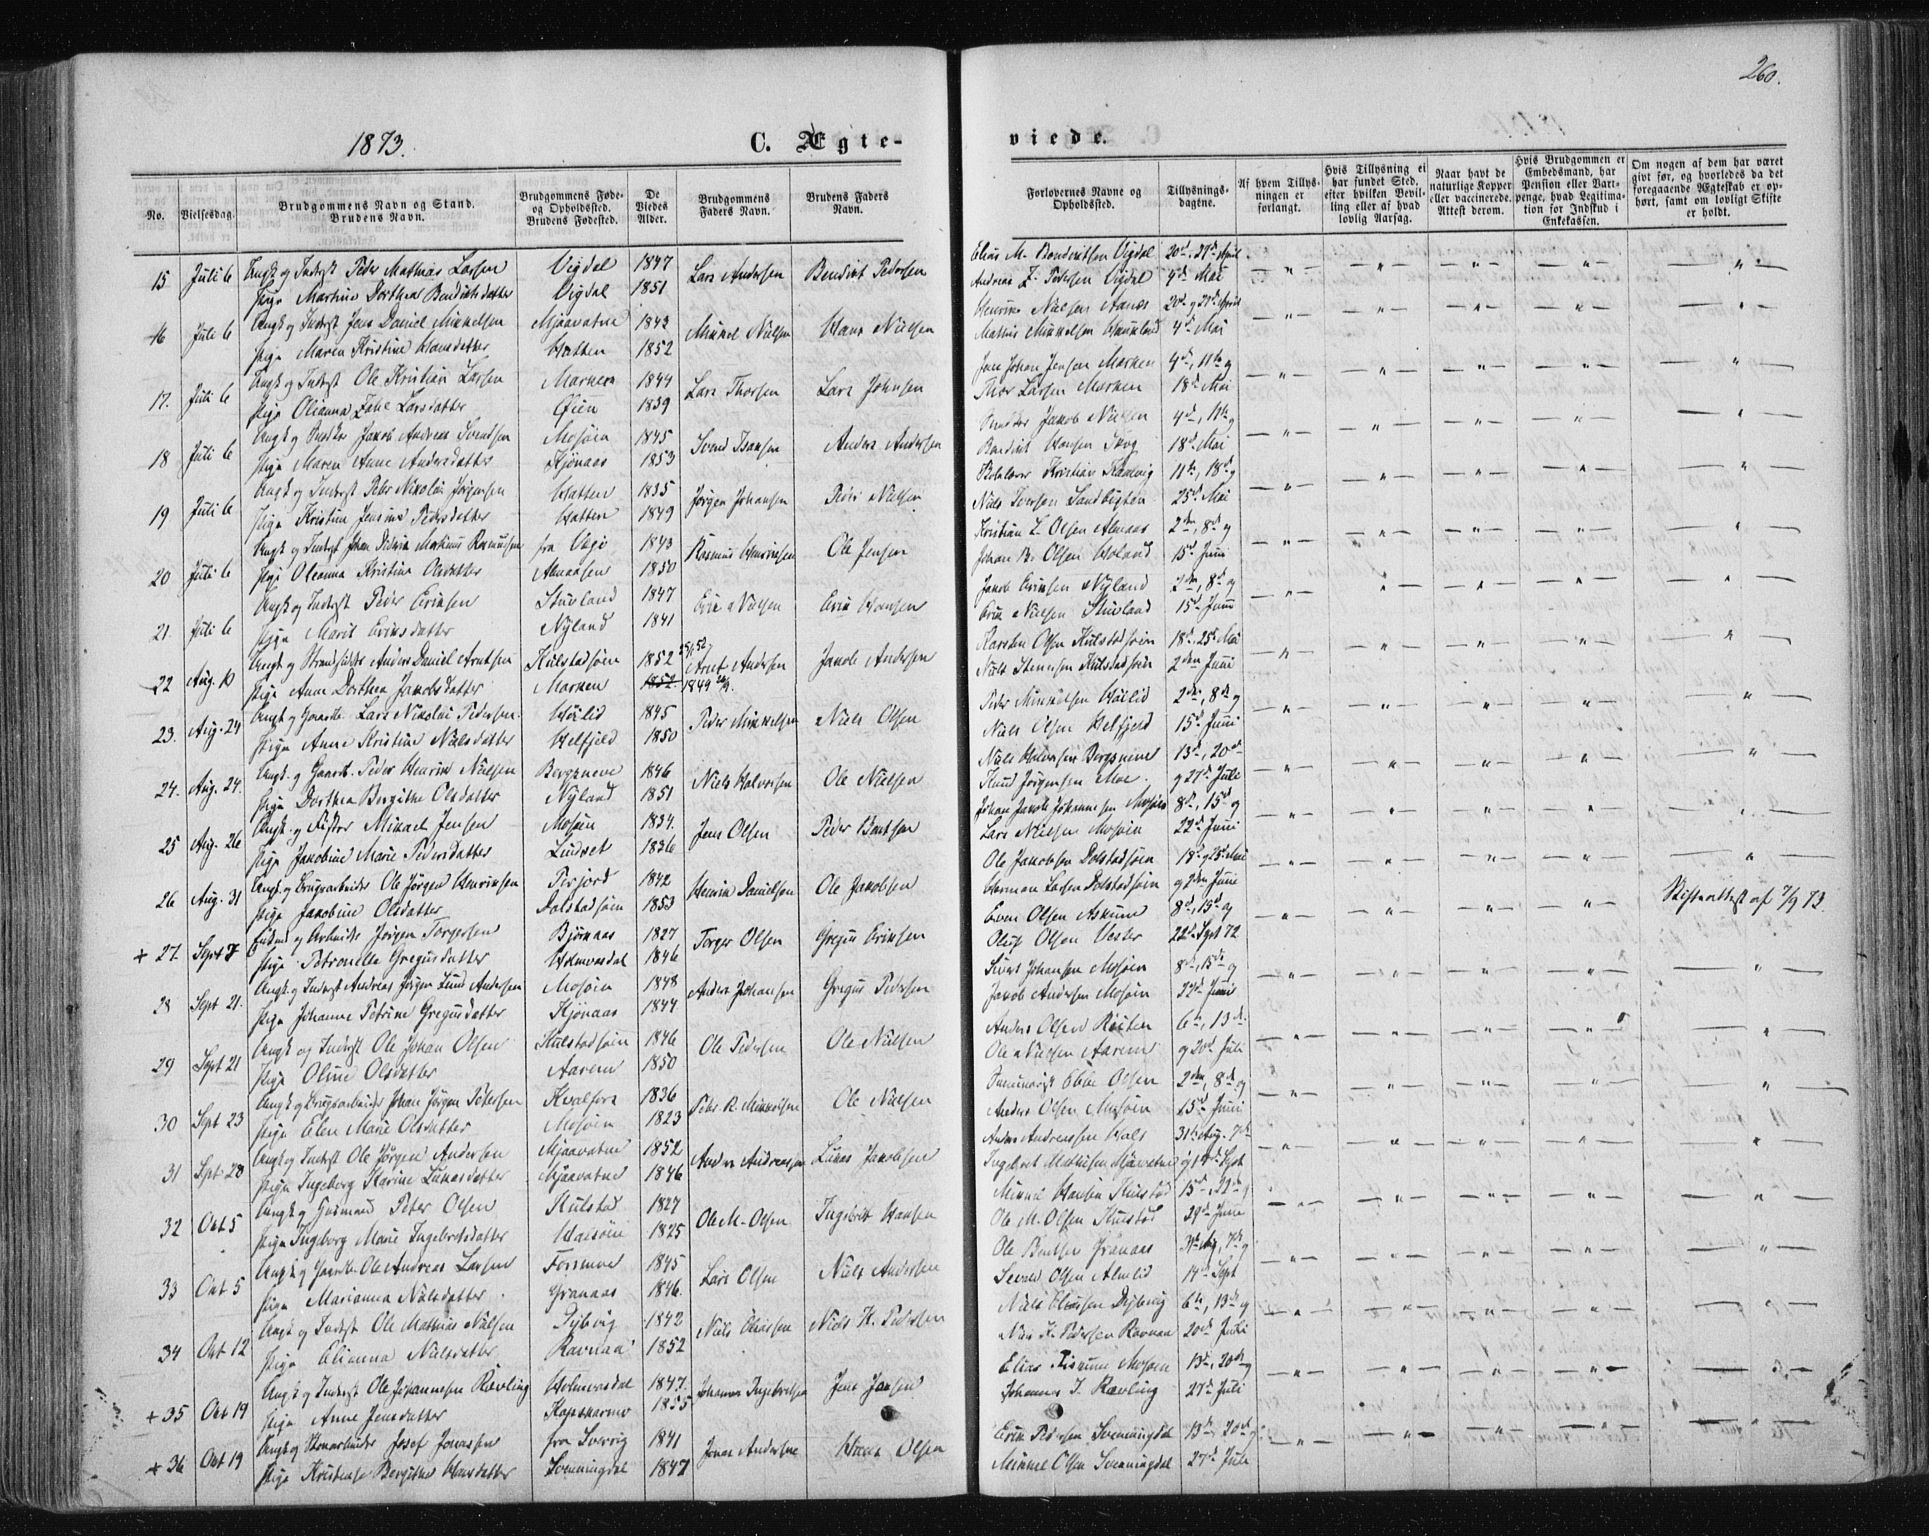 260.
1873.
C. Ægte-
viede.
No.
Vielsesdag.
Brudgommens Navn og Stand.
Brudens Navn.
Brudgommens Føde-
og Opholdssted.
Brudens Fødested.
De
Viedes
Alder.
Brudgommens
Faders Navn.
Brudens Faders
Navn.
Forlovernes Navne og
Opholdssted.
Tillysnings-
dagene.
Af hvem Tillys-
ningen er
forlangt.
Hvis Tillysning ei
har fundet Sted,
efter hvilken Bevil-
ling eller af hvad
lovlig Aarsag.
Naar havt de
naturlige Kopper
eller vaccinerede.
Attest derom.
Hvis Brudgommen er
Embedsmand, har
Pension eller Vart-
penge, hvad Legitima-
tion for Indskud i
Enkekassen.
Om nogen af dem har været
givt før, og hvorledes da det
foregaaende Ægteskab er op-
hørt, samt om lovligt Skifte
er holdt.
15 Juli 6 Ungk og Inderst Peder Mathias Larsen Vigdal 1847 Lars Andersen Bendikt Pedersen Elias M. Bendiktsen Vigdal 20de, 27de April
Pige Martine Dorthea Bendiktsdatter Vigdal 1851 Andreas Z. Pedersen Vigdal 4de Mai
16 Juli 6 Ungk og Inderst Jens Daniel Mikkelsen Mjaavatne 1843 Mikkel Nielsen Hans Nielsen Henrik Nielsen Aanes 20de og 27de April
Pige Maren Kristine Hansdatter Hatten 1852 Mathias Mikkelsen 4de Mai
17. Juli 6 Ungk og Inderst Ole Kristian Larsen Marken 1844 Lars Thorsen Lars Johnsen Jens Johan Jensen Marken 4de, 11te og
Pige Olianna Larsdatter Øien 1839 Thor Larsen Marken 18de Mai
18 Juli 6 Ungk og Jakob Andreas Svendsen Mosøen 1845 Svend Isaksen Anders Andersen Jakob Nielsen 4de, 11te og
Pige Maren Anne Andersdatter Kjønaas 1853 Bendikt Hansen Skog 18de Mai
19 Juli 6 Ungk og Inderst Peter Nikolai Jørgensen Hatten 1835 Jørgen Johansen Peder Nielsen Kristian 11te, 18de og
Pige Kristine Jensine Pedersdatter Hatten 1849 Niels Iversen 25de Mai
20 Juli 6 Ungk og Inderst Johan Markus Rasmussen fra Vega 1843 Rasmus Henriksen Ole Jensen Kristian L. Olsen Almaas 2den, 8de og
Pige Oleanna Kristine Olsdatter Almaasen 1850 Johan B. Olsen Holand 15de Juni
21. Juli 6 Ungk og Inderst Peder Eriksen Stuvland 1847 Erik Nielsen Erik Hansen Jakob Eriksen Nyland 2den, 8de og
Pige Marit Eriksdatter Nyland 1841 Erik Nielsen Stuvland 15de Juni
22 Aug. 10 Ungk og Strandsidder Anders Daniel Arntsen Kulstadsøen 1852 Arnt Andersen Jakob Andersen Karsten Olsen Kulstadsøen 18de, 25de Mai
Pige Anne Dorthea Jakobsdatter Marken 1852 1849 Niels Stenersen Kulstadsøen 2den Juni
23. Aug. 24 Ungk og Gaardb. Lars Nikolai Pedersen Højlid 1845 Peder Mikkelsen Niels Olsen Peder Mikkelsen Højlid 2den, 8de og
Pige Anne Kristine Nielsdatter Helfjeld 1850 Niels Olsen Helfjeld 15de Juni
24. Aug. 24. Ungk. og Gaardb. Peder Henrik Nielsen Bergsneve 1846 Niels Halvorsen Ole Nielsen Niels Halvorsen Bergsneve 13de, 20de
Pige Dorthea Bergithe Olsdatter Nyland 1851 Knud Jørgensen Moe. og 27de Juli
25 Aug. 26 Ungk. og Fisker Mikael Jensen Mosøen 1834. Jens Olsen Peder Bentsen Johan Jakob Johannesen Mosøen 8de, 15de og
Pige Jakobine Marie Pedersdatter Lindset 1836 Lars Nielsen Mosøen 22de Juni
26 Aug. 31 Ungk. og Brugsarbeider Ole Jørgen Henriksen Forjord 1842 Henrik Danielsen Ole Jakobsen Ole Jakobsen Dolstadsøen 18de og 25de Mai
Pige Jakobine Olsdatter Dolstadsøen 1853 Herman Larsen Dolstadsøen og 2den Juni
+ 27. Sept 7 Enkem. og Arbeider Jørgen Torgersen Bjørnaas 1827 Torger Olsen Gregus Eriksen Even Olsen Askene 8de, 15de og Skifteattest af 7/9 73.
Pige Petronella Gregusdatter Holmvasdal 1846 Oluf Olsen Vester 22de Sept 72
28 Sept 21. Ungk. og Inderst Andreas Jørgen Lund Andersen Mosøen 1848 Anders Johansen Gregus Pedersen Sivert Johansen Mosøen 8de, 15de og
Pige Johanne Petrine Gregusdatter Kjønaas 1844 Jakob Andersen Mosøen 22de Juni
29 Sept 21 Ungk og Inderst Ole Johan Olsen Kulstadsøen 1846 Ole Pedersen Ole Nielsen Anders Olsen 6te, 13de
Pige Oline Olsdatter Aarem 1850 Ole Nielsen Aarem og 20de Juli
30 Sept 23 Ungk og Brugsarbeider Johan Jørgen Petersen Kvalfors 1836 Peter R. Mikkelsen Ole Nielsen Ebbe Olsen 2den, 8de og
Pige Elen Marie Olsdatter Mosøen 1823 Anders Olsen Mosøen 15de Juni
31 Sept 28 Ungk og Inderst Ole Jørgen Andersen Mjaavatne 1852 Anders Andreassen Lukas Jakobsen Anders Andreassen Hals 31te Aug. 7de
Pige Ingeborg Karine Lukasdatter Mjaavatne 1846 Ingebret Mathisen Mjaavatne og 14de Sept
32 Okt 5 Ungk og Husmand Peter Olsen Kulstad 1827 Ole M. Olsen Ingebrit Hansen Mikkel Hansen Kulstad 15de, 22de og
Pige Ingeborg Marie Ingebretsdatter Halsøen 1825 Ole M. Olsen Kulstad 29de Juni
33 Okt 5 Ungk og Gaardb. Ole Andreas Larsen Forsmoe 1845 Lars Olsen Niels Andersen Ole Bentsen Granaas 31te Aug, 7de og
Pige Marianna Nielsdatter Granaas 1846. Olsen Almlid 14de Sept
34 Okt 12 Ungk og Inderst Ole Mathias Nielsen Dybvig 1842 Niels Eliassen Niels K. Pedersen Niels Eliassen Dybvig 6te, 13de og
Pige Elianna Nielsdatter Ravnaa 1852 Niels K. Pedersen Ravnaa 20de Juli
+ 35 Okt 19 Ungk og Inderst Ole Johannesen Rævling Holmvasdal 1847. Johannes Ingebretsen Jens Jensen Elias Mosøen 13de, 20de og
Pige Anne Jensdatter Kapskarmo 1855 Johannes I. Rævling 27de Juli
+ 36 Okt 19 Ungk og Stenarbeider Josef Jonassen fra Sverrig 1841 Jonas Andersen Hans Olsen Erik Pedersen Svenningdal 13de, 20de og
Pige Kristense Bergithe Hansdatter Svenningdal 1847 Mikkel Olsen Svenningdal 27de Juli